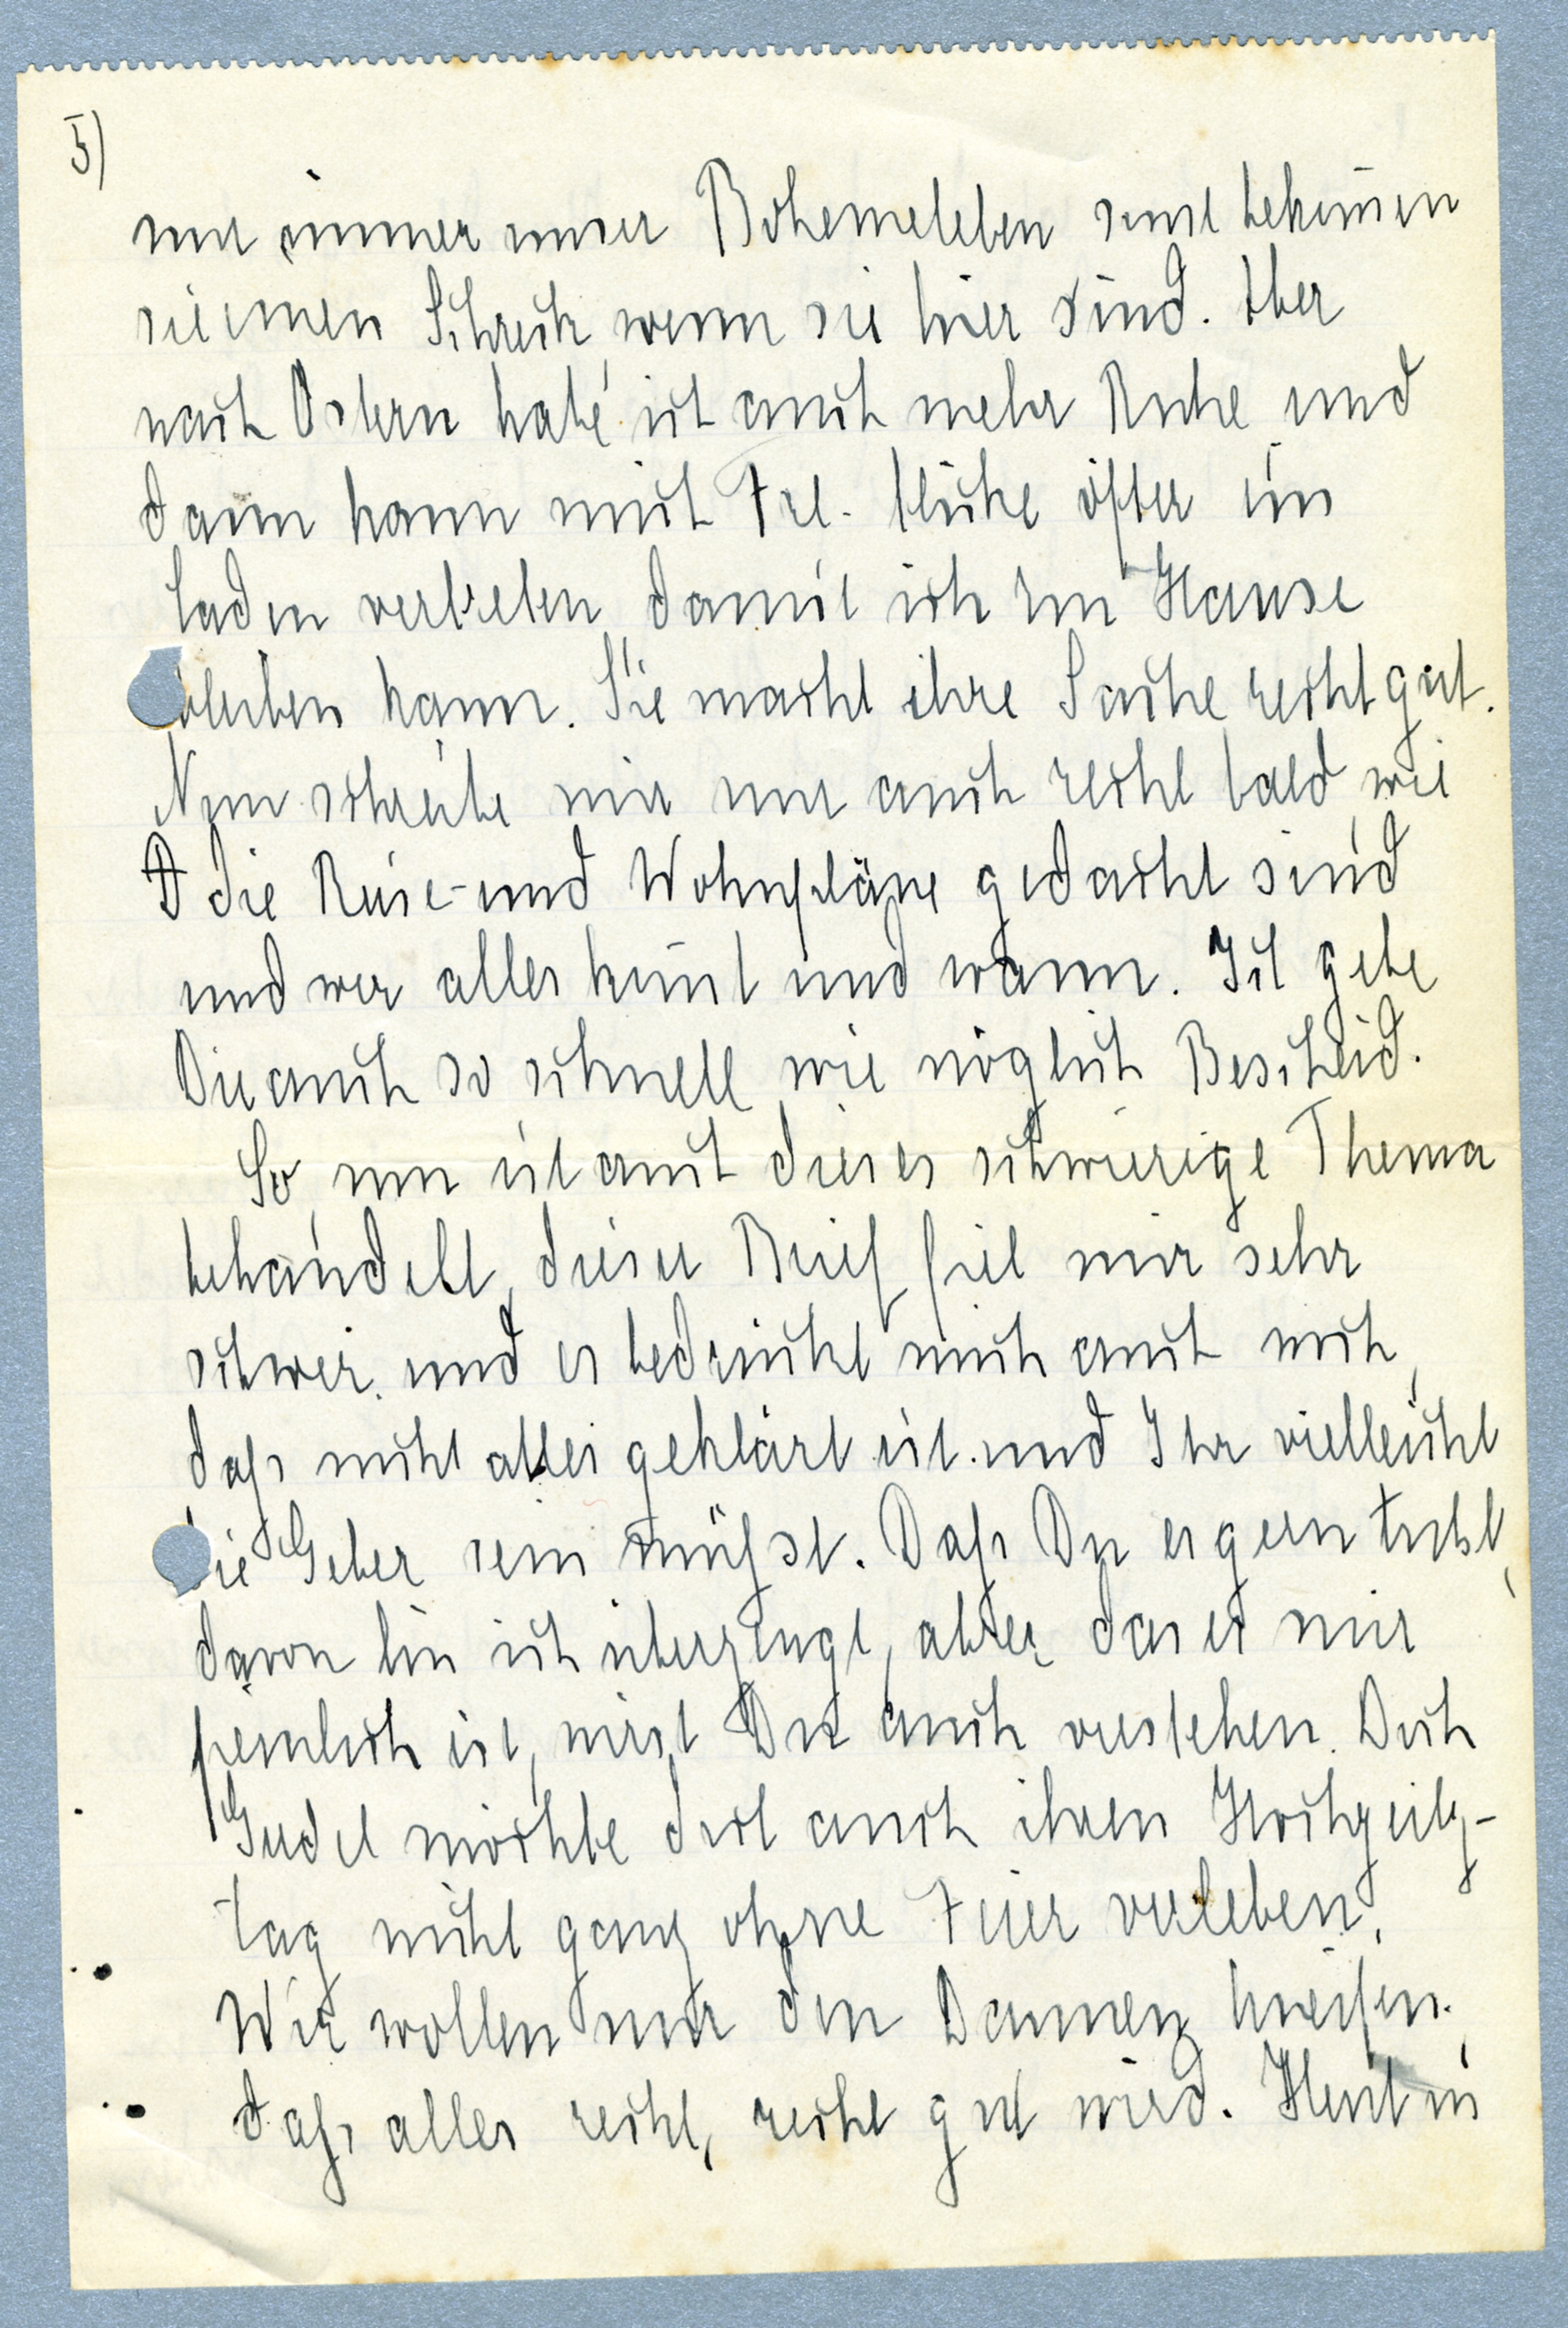 5)
nur immer unser Boheméleben sonst bekommen
sie einen Schreck, wenn sie hier sind. Aber
nach Ostern habe ich auch mehr Ruhe und
dann kann mich Frl. öfter im
Laden vertreten, damit ich im Hause
bleiben kann. Sie macht ihre Sache recht gut.
Nun schreibe mir nur auch recht bald, wie
die Reise- und Wohnpläne gedacht sind
und wer alles kommt und wann. Ich gebe
Dir auch so schnell wie möglich Bescheid.
So, nun ist auch dieses schwierige Thema
behandelt, dieser Brief fiel mir sehr
schwer und es bedrückt mich auch noch,
daß nicht alles geklärt ist und Ihr vielleicht
die Geber sein müßt. Daß Du es gern tust,
davon bin ich überzeugt, aber das es mir
peinlich ist, wirst Du auch verstehen. Doch
Gudel möchte doch auch ihren Hochzeits-
tag nicht ganz ohne Feier verleben.
Wir wollen nur den Daumen kneifen,
daß alles recht, recht gut wird.